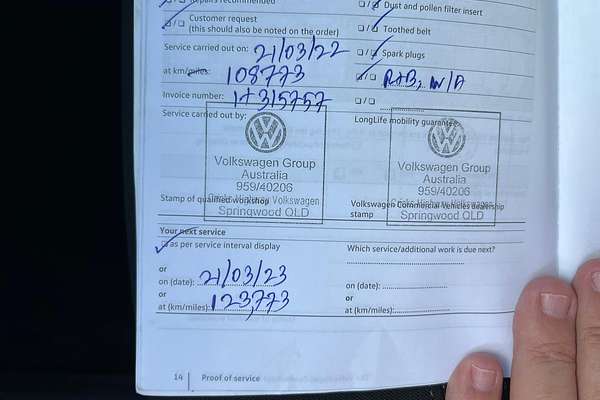 Repairs recommended
Dust and pollen filter insert
Customer request
(this should also be noted on the order)
Toothed belt
Service carried out on: 21/03/22
Spark plugs
at km/miles: 108773
Invoice number:
Service carried out by:
LongLife mobility guarantee:
Volkswagen Group
Australia
959/40206
Springwood QLD
Volkswagen Group
Australia
959/40206
Springwood QLD
Stamp of qualified workshop
Volkswagen Commercial Vehicles dealership
stamp
Your next service
as per service interval display
Which service/additional work is due next?
or
on (date): 21/03/23
on (date):
or
or
at (km/miles): 123,773
at (km/miles):
14 Proof of service